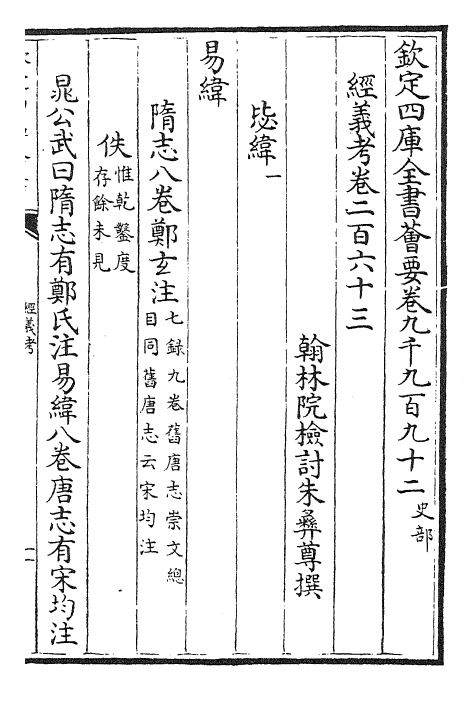 欽定四庫全書薈要卷九千九百九十二 史部
經義考卷二百六十三
翰林院檢討朱彝尊撰
毖緯一
易緯
隋志八卷鄭玄注 七錄九卷舊唐志崇文總
目同舊唐志云宋均注
佚 惟乾鑿度
存餘未見
晁公武曰隋志有鄭氏注易緯八卷唐志有宋均注
經義考
一